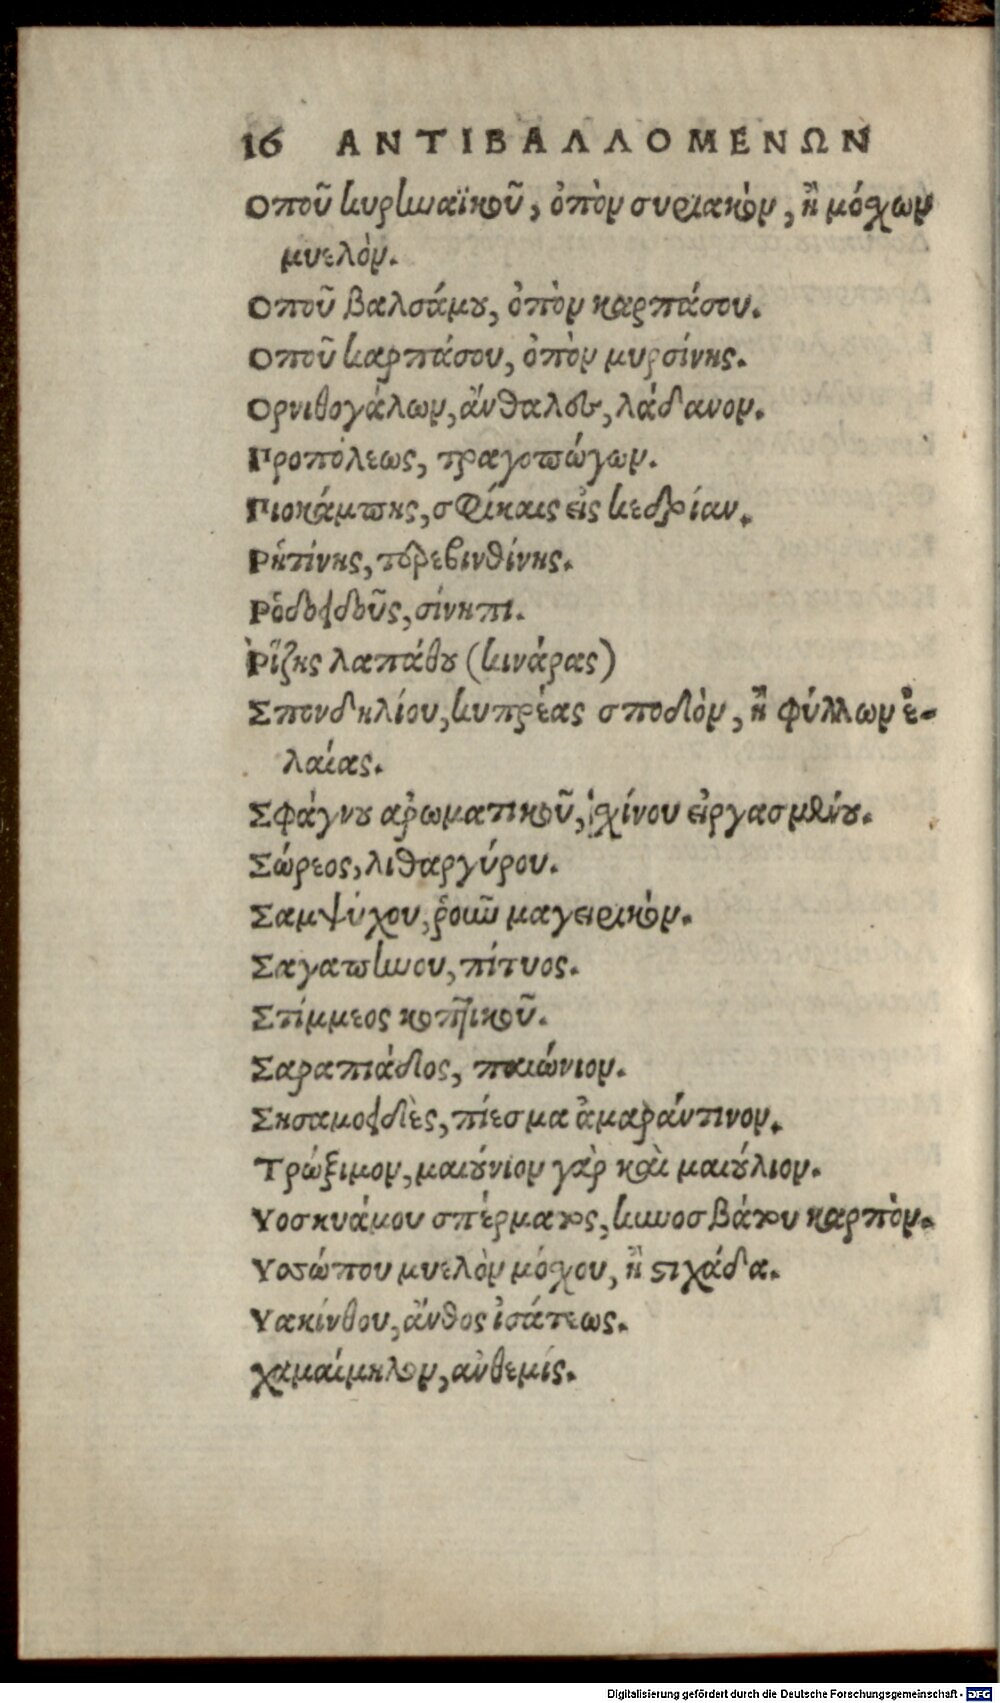 16 ΑΝΤΙΒΑΛΛΟΜΕΝΩΝ
Οποῦ κυρηναϊκοῦ, ὀπὸν συριακὸν, ἢ μόσχων
μυελὸν.
Οποῦ βαλσάμου, ὀπὸν καρπάσου.
Οποῦ καρπάσου, ὀπὸν μυρσίνης.
Ορνιθογάλων, λάδανον.
Προπόλεως, τραγοπώγων.
Πιοκάμπης, σφίκαις εἰς κεδρίαν.
Ρητίνης, τερεβινθίνης.
Ροδοδενδοῦς, σίνηπι.
Ῥίζης λαπάθου (κινάρας)
Σπονδηλίου, κυπρέας σποδὸν, ἢ φύλλων ἐ-
λαίας.
Σφάγνου ἀρωματικοῦ, ἐχίνου εἰργασμένου.
Σώρεος, λιθαργύρου.
Σαμψύχου, ῥοῦν μαγειρικὸν.
Σαγαπήνου, πίτυος.
Στίμμεος κοπτικοῦ.
Σαραπιάδος, παιώνιον.
Σησαμοειδὲς, πίεσμα ἀμαράντινον.
Τρώξιμον, μαιούνιον γὰρ καὶ μαιούλιον.
Υοσκυάμου σπέρματος, κυνοσβάτου καρπὸν.
Υοσώπου μυελὸν μόσχου, ἢ στιχάδα.
Υακίνθου, ἄνθος ἰσάτεως.
χαμαίμηλον, ἀνθεμίς.
Digitalisierung gefördert durch die Deutsche Forschungsgemeinschaft - DFG